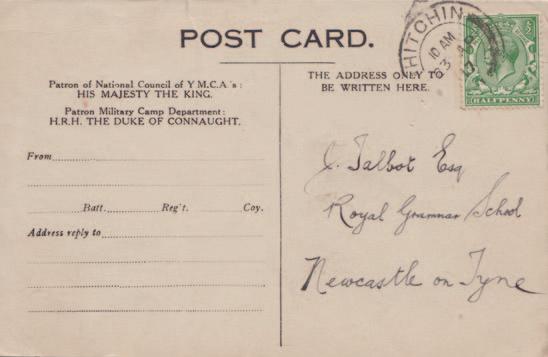 POST CARD.
Patron of National Council of Y M.C.A's:
HIS MAJESTY THE KING.
Patron Military Camp Department:
H.R.H. THE DUKE OF CONNAUGHT.
From
Batt. Reg't. Coy.
Address reply to
THE ADDRESS ONLY TO
BE WRITTEN HERE.
HITCHIN
10 AM
23
17
HALFPENNY
Talbot Esq
Royal Grammar School
Newcastle on Tyne